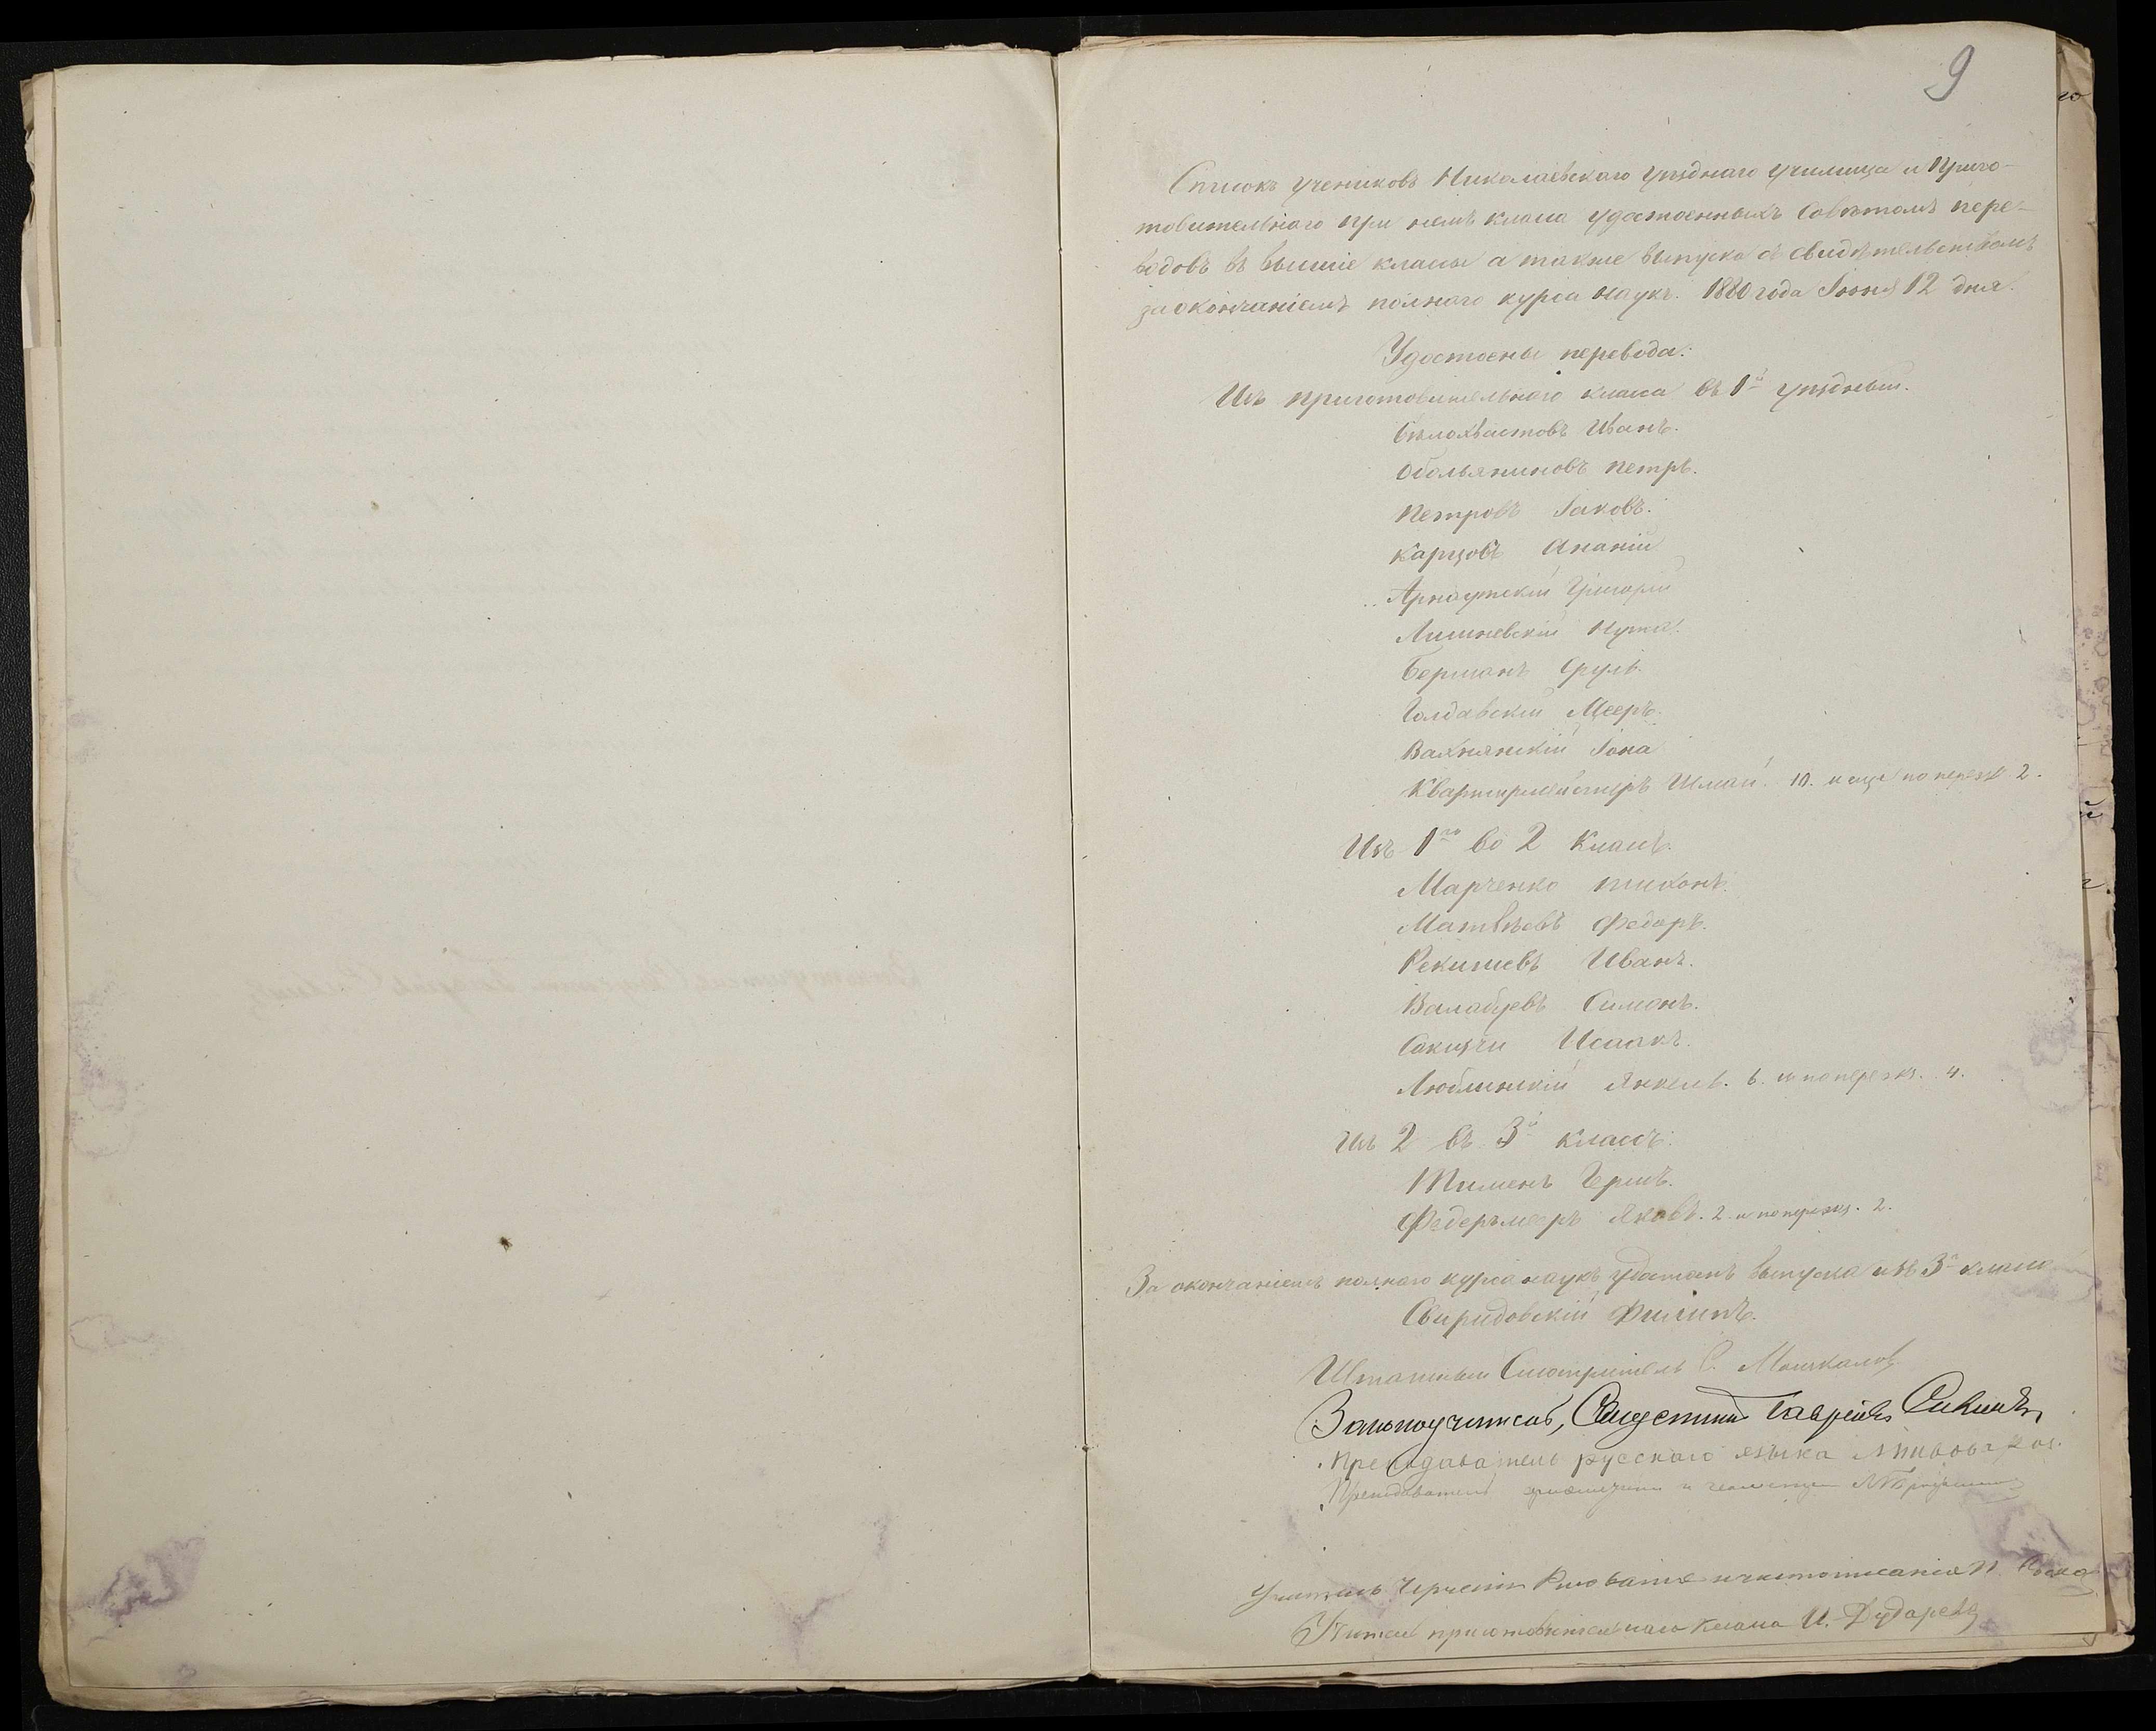 9
Списокъ учениковъ Николаевскаго уѣзднаго училища и Приго-
товительнаго при немъ класса удостоенныхъ Совѣтомъ пере-
водовъ въ высшіе классы а также выпуска съ свидѣтельствомъ
за окончаніемъ полнаго курса наукъ. 1880 года Іюня 12 дня.
Удостоены перевода:
Изъ приготовительнаго класса въ 1й уѣздный.
Бѣлохвостовъ Иванъ.
Обольяниновъ Петръ.
Петровъ Іаковъ.
Карцовъ Ананій
Арнаутскій Григорій
Лишневскій
Берманъ Сруль.
Голдавскій Мееръ.
Вахнянскій Іона
Квартирмейстеръ Шмай. 10. и еще по переэкз 2.
Изъ 1го во 2 классъ.
Марченко Тихонъ.
Матвѣевъ Федоръ.
Рекишевъ Иванъ.
Симонъ.
Исаакъ.
Люблинскій Янкель. 6. и по переэкз. 4.
Изъ 2 въ 3й классъ:
Тименъ Герша.
Федермееръ Яковъ. 2. и по переэкз. 2.
За окончаніемъ полнаго курса наукъ удостоенъ выпуска изъ 3го класса
Свиридовскій Филипъ.
Штатный Смотритель С. Машкаловъ
Законоучитель, Гавріилъ
Преподаватель русскаго языка
Преподаватель ариѳметики и геометріи
Учитель Черченія Рисованія и чистописанія П.
Учитель приготовительнаго класса И. Дударевъ